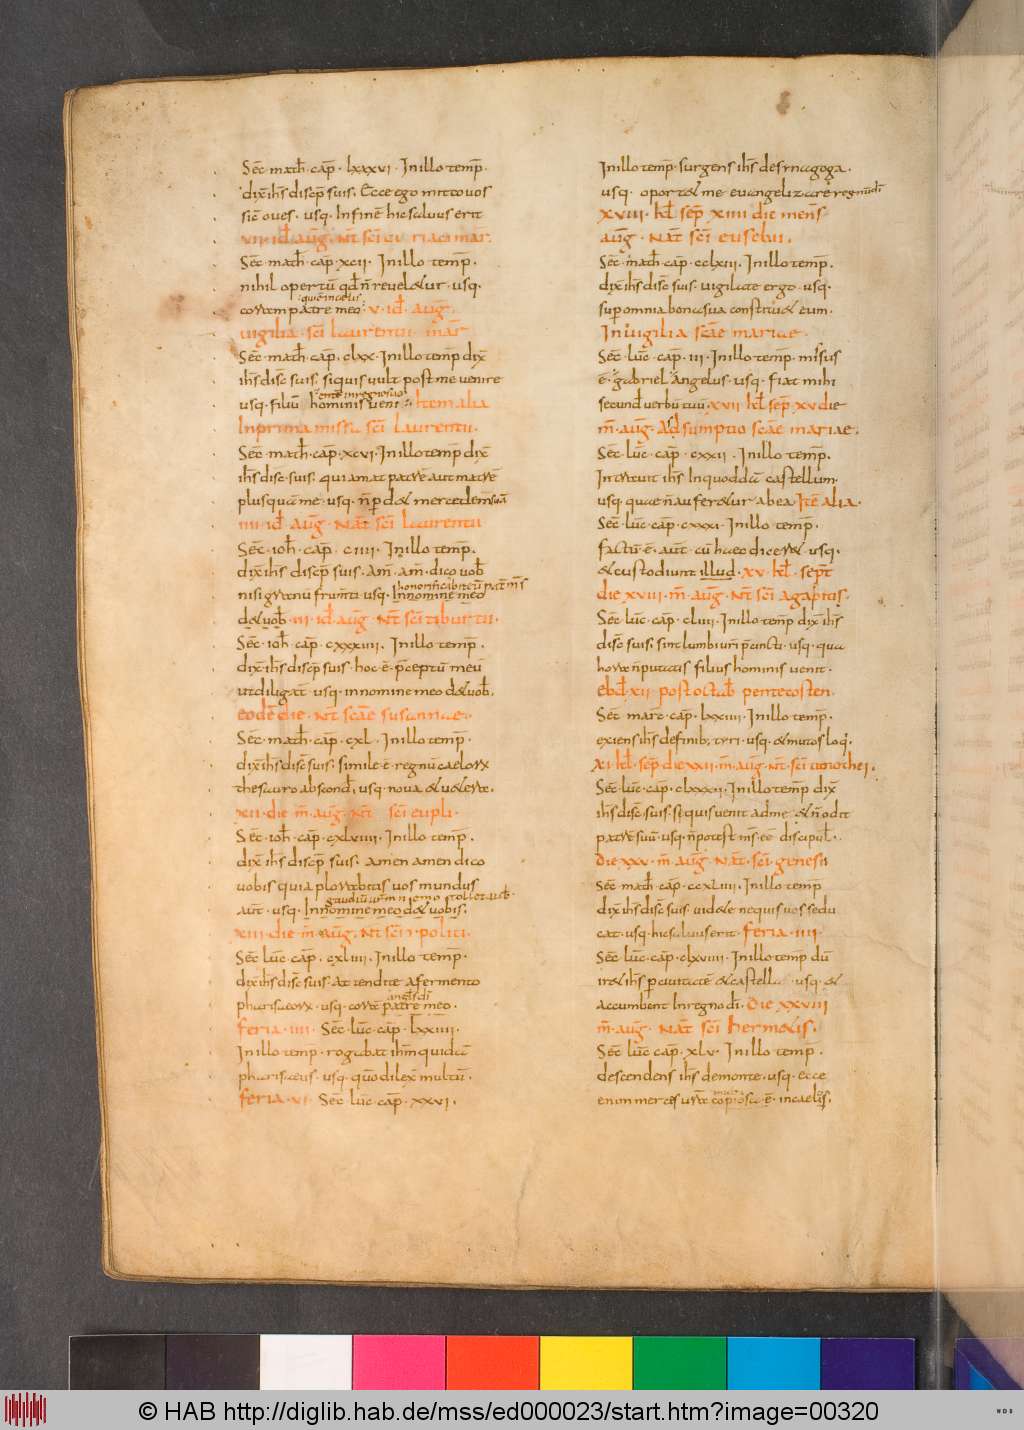 Sec̄ math̄ cap̄ lxxxvi · In illo temp̄ ·
dix̄ ih̄s discip̄ suis · Ecce ego mitto vos
sic̄ oves · usq · In finē hic salvus erit
vii id̄ aug̅ · Nt̄ sc̄i cyriaci mar̄
Sec̄ math̄ cap̄ xcii · In illo temp̄ ·
nihil opertū qd̄ n̄ revel&ur · usq ·
coram patre meo · qui ē in celis · v · id̄ aug̅ ·
vigilia · sc̄i laurentii mar̄
Sec̄ math̄ cap̄ · clxx · In illo temp̄ dix̄
ih̄s disc̄ suis · siquis vult post me venire
usq · filiū hominis veni · entē in regno suo · Item alia
In prima missa sc̄i laurentii ·
Sec̄ math̄ cap̄ · xcvi · In illo temp̄ dix̄
ih̄s disc̄ suis · qui amat patrē aut matrē
plusquā me · usq · n̄ p̱d& mercedem suā
iiii · id̄ aug̅ · Nat̄ sc̄i laurentii
Sec̄ · ioh̄ · cap̄ · ciiii · In illo temp̄ ·
dix̄ ih̄s discip̄ suis · Am̄ · am̄ · dico vob̄
nisi granū frum̄ti · usq · honorificabit eū pat̄ m̄s In nomine meo
d& vob̄ · iii · id̄ aug̅ · Nt̄ sc̄i tiburtii ·
Sec̄ · ioh̄ · cap̄ · cxxxiiii · In illo temp̄ ·
dix̄ ih̄s discip̄ suis · hoc · ē · p̄ceptū meū
ut diligat̄ · usq · in nomine meo d& vob̄ ·
eodē die · Nt̄ sc̄ae susannae ·
Sec̄ · math̄ · cap̄ · cxl · In illo temp̄ ·
dix̄ ih̄s disc̄ suis · simile · ē · regnū caelorx
thesauro abscond̄ · usq · nova & v&era ·
xii · die · m̄ · aug̅ · Nt̄ sc̄i eupli ·
Sec̄ · ioh̄ · cap̄ · cxlviiii · In illo temp̄ ·
dix̄ ih̄s discip̄ suis · Amen amen dico
vobis quia plorabitis vos mundus
aut̄ · usq · gaudiū vr̄m nemo toll& a vob̄ In nomine meo d& vobis ·
xiii · die · m̄ · aug̅ · Nt̄ sc̄i ypoliti ·
Sec̄ luc̄ · cap̄ · cxliiii · In illo temp̄ ·
dix̄ ih̄s disc̄ suis · attendite a fermento
pharisaeorx · usq · corā angl̄is dī patre meo ·
feria · iiii · Sec̄ · luc̄ · cap̄ · lxxiiii ·
In illo temp̄ · rogabat ih̄m quidā
pharisaeus · usq · qūo dilex̄ multū ·
feria · vi · Sec̄ · luc̄ · cap̄ · xxvi ·
In illo temp̄ · surgens ih̄s de synagoga ·
usq · oport& me evangelizare regnū dī
xviii · kl̄ sep̄ xiiii die mens̄
aug̅ · Nat̄ sc̄i eusebii ·
Sec̄ math̄ cap̄ cclxiii · In illo temp̄ ·
dix̄ ih̄s disc̄ suis · vigilate ergo · usq ·
sup̱ omnia bona sua constitu& eum ·
In vigilia sc̄ae mariae ·
Sec̄ · luc̄ · cap̄ · iii · In illo temp̄ · misus
ē · gabriel Angelus · usq · fiat mihi
secund̄ verbū tuū · xvii · kl̄ sep̄ · xv die
m̄ · aug̅ · Adsumptio sc̄ae mariae ·
Sec̄ · luc̄ · cap̄ · cxxii · In illo temp̄ ·
Intravit ih̄s In quoddā castellum ·
usq · quae n̄ aufer&ur ab ea · Itē alia ·
Sec̄ · luc̄ cap̄ · cxxxi · In illo temp̄ ·
factū · ē · aut̄ · cū haec dicer& · usq ·
& custodiunt illud · xv · kl̄ · sept̄
die xviii · m̄ · aug̅ · Nt̄ sc̄i agapitis ·
Sec̄ luc̄ · cap̄ · cliiii · In illo temp̄ dix̄ ih̄s
disc̄ suis · sint lumbi vr̄i p̄cincti · usq · qua
hora n̄ putatis filius hominis veni&·
ebd̄ · xii · post octab̄ pentecosten ·
Sec̄ marc̄ · cap̄ · lxxiiii · In illo temp̄ ·
exiens ih̄s de finib; tyri · usq · & mutos loq̄ ·
xi · kl̄ · sep̄ · die xxii · m̄ · aug̅ · Nt̄ · sc̄i timothei ·
Sec̄ · luc̄ · cap̄ · clxxxii · In illo temp̄ dix̄
ih̄s disc̄ · suis · si quis venit ad me · & n̄ odit
patrē suū · usq · n̄ potest m̄s · eē · discipul̄ ·
Die xxv · m̄ · aug̅ · Nat̄ · sc̄i genesii
Sec̄ math̄ cap̄ · ccxliiii · In illo temp̄
dix̄ ih̄s disc̄ suis · vid&e ne quis vos sedu
cat · usq · hic salvus erit · feria · iiii ·
Sec̄ luc̄ · cap̄ · clxviiii · In illo temp̄ dū
ir& ih̄s p̱ civitatē & castella · usq · &
accumbent In regno dī · Die xxviii
m̄ · aug̅ · Nat̄ sc̄i hermetis ·
Sec̄ luc̄ cap̄ · xlv · In illo temp̄ ·
descendens ih̄s de monte · usq · ecce
enim merces vr̄a copiosa · ē · in caelis ·
© HAB http://diglib.hab.de/mss/ed000023/start.htm?image=00320